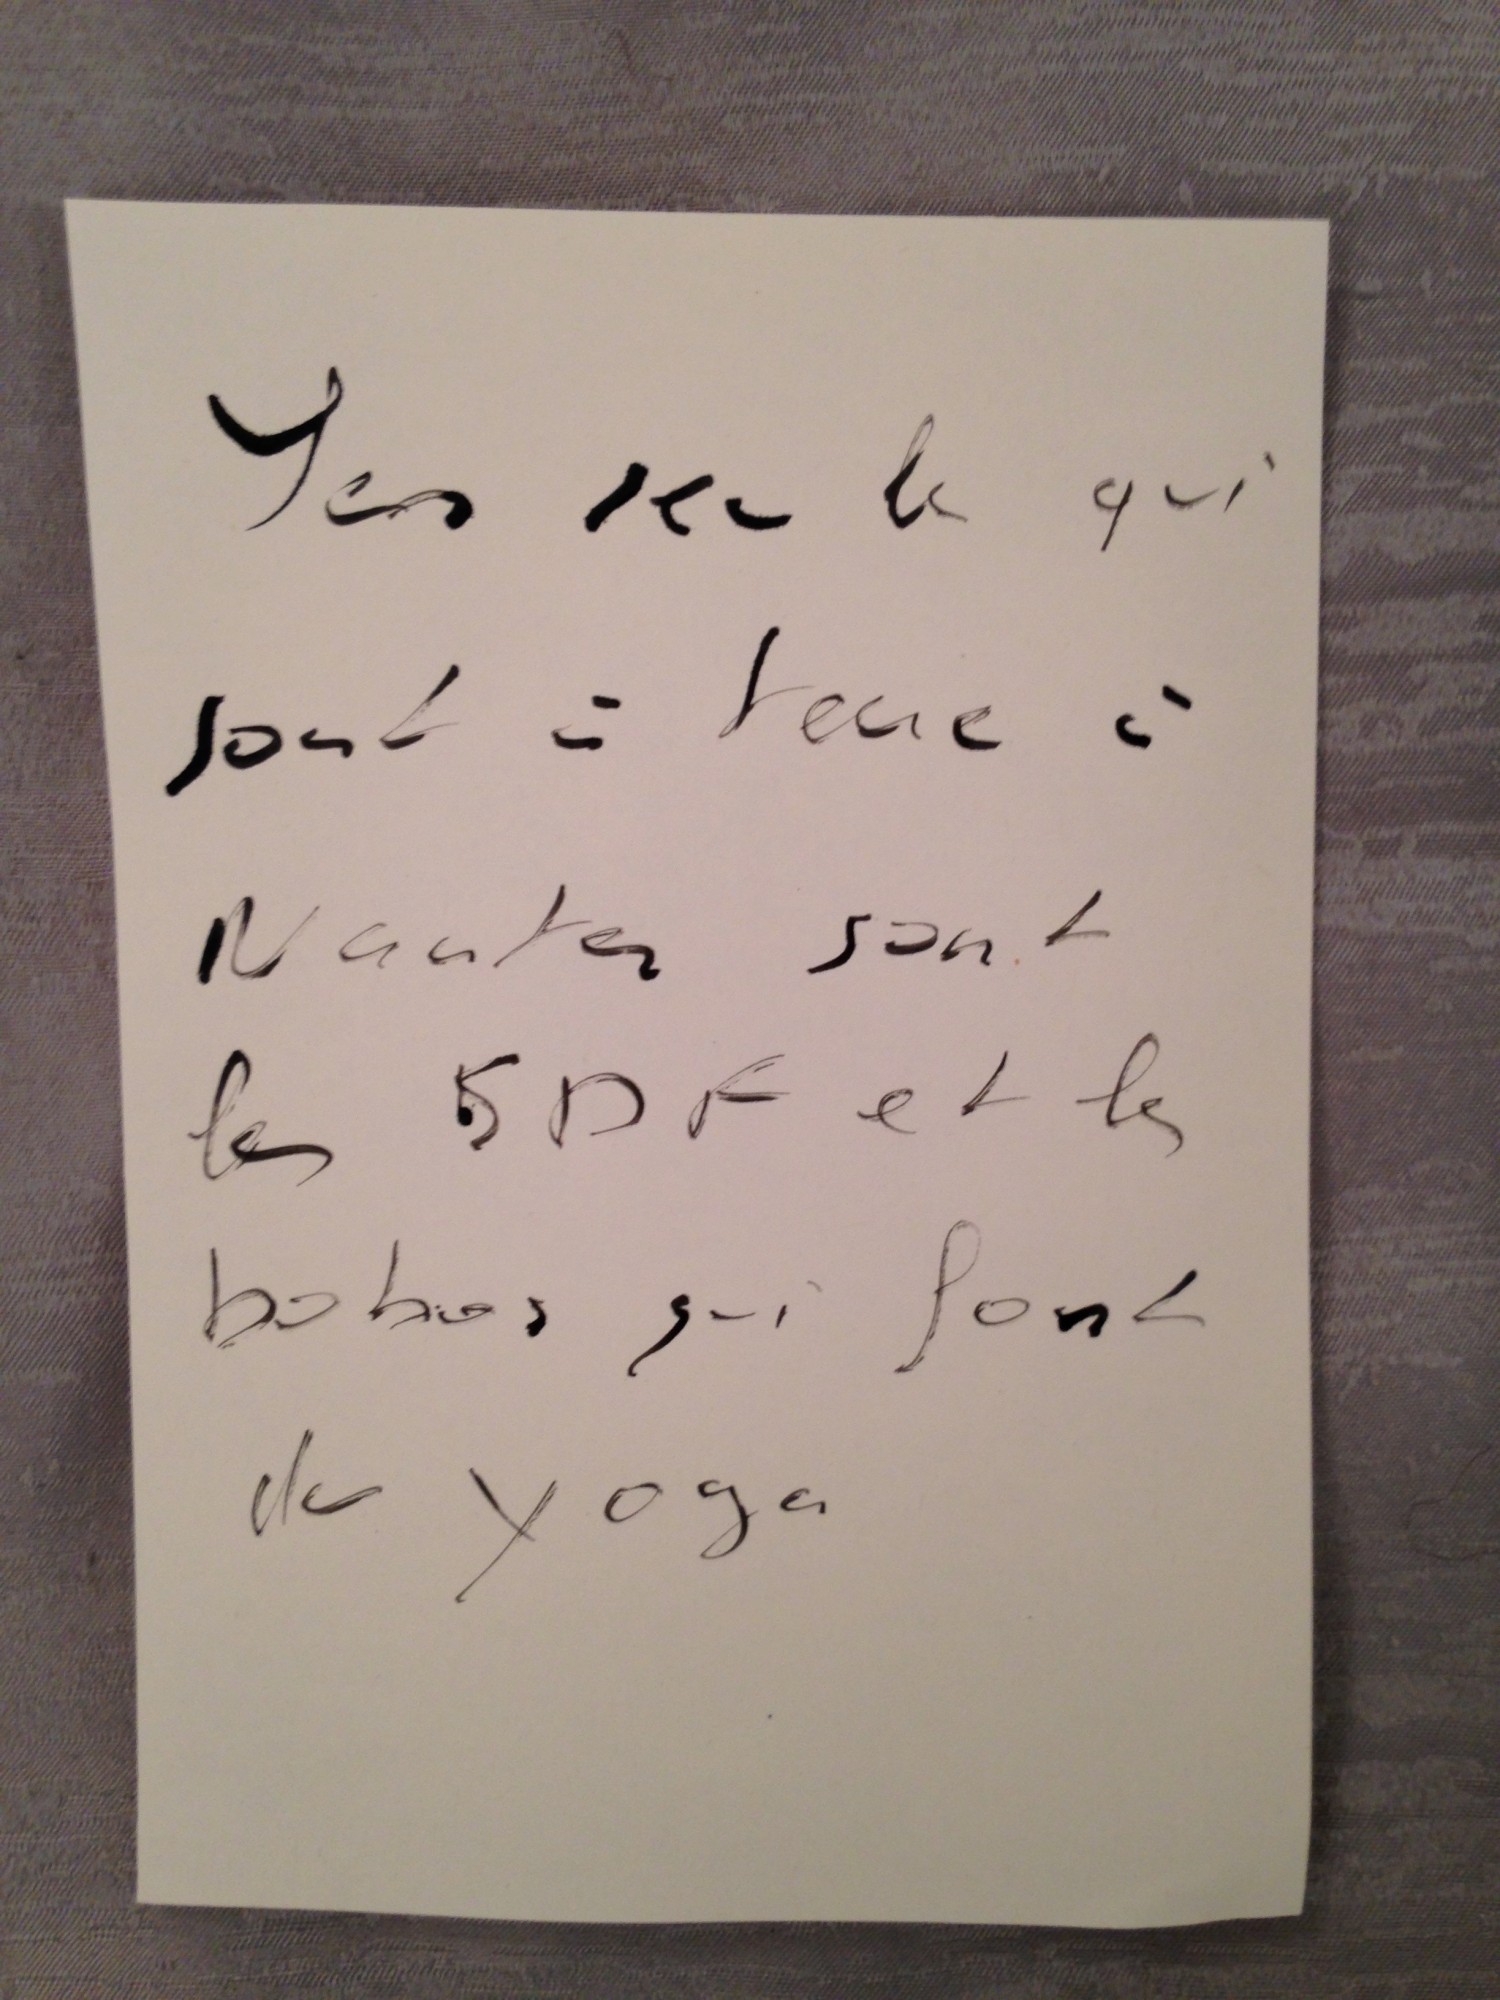 qui
sont à terre à
Nantes sont
les SDF et les
bobos qui font
du yoga